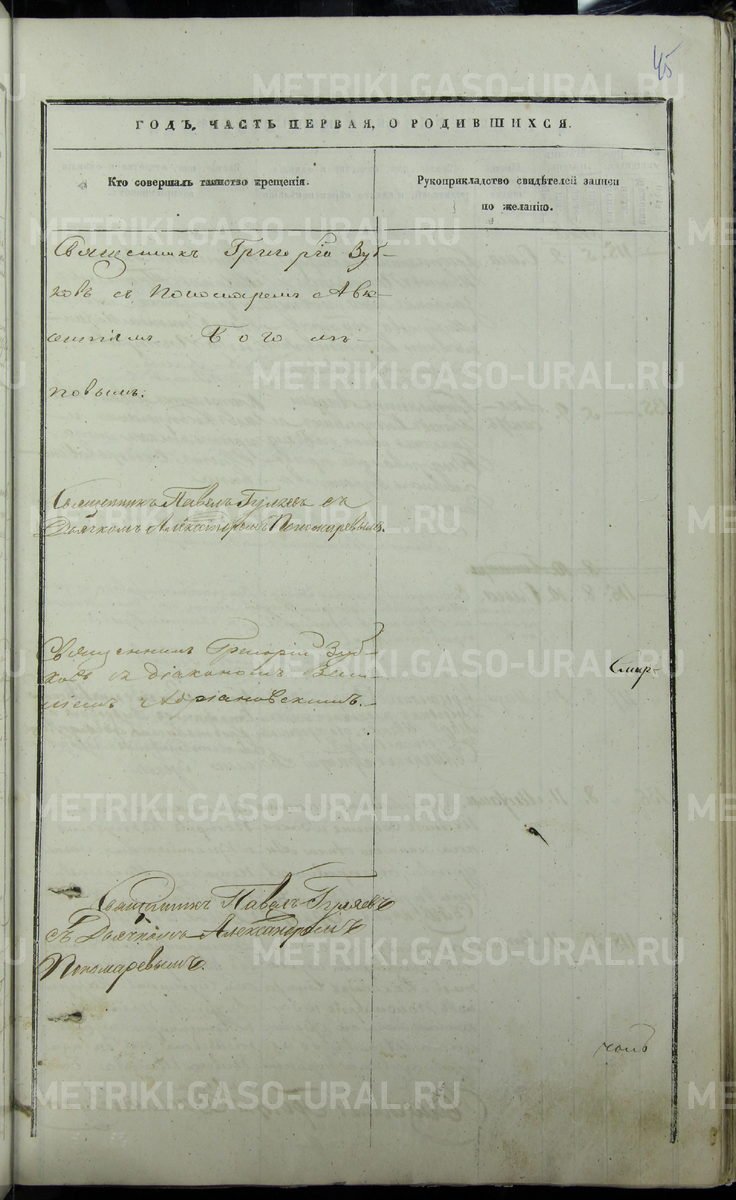 45
ГОДЪ, ЧАСТЬ ПЕРВАЯ, О РОДИВШИХСЯ.
Кто совершалъ таинство крещенія.
Рукоприкладство свидѣтелей записи
по желанію.
Священникъ Григорій Зуб-
ковъ съ Пономаремъ Авк-
сентіемъ Богомѣ-
повымъ.
Священникъ Павелъ Гуляевъ съ
Дьячкомъ Александромъ Пономаревымъ.
Священникъ Григорій Зуб-
ковъ съ діакономъ
Адріановскимъ.
Смир-
Священникъ Павелъ Гуляевъ
съ Дьячкомъ Александромъ
Пономаревымъ.
METRIKI.GASO-URAL.RU